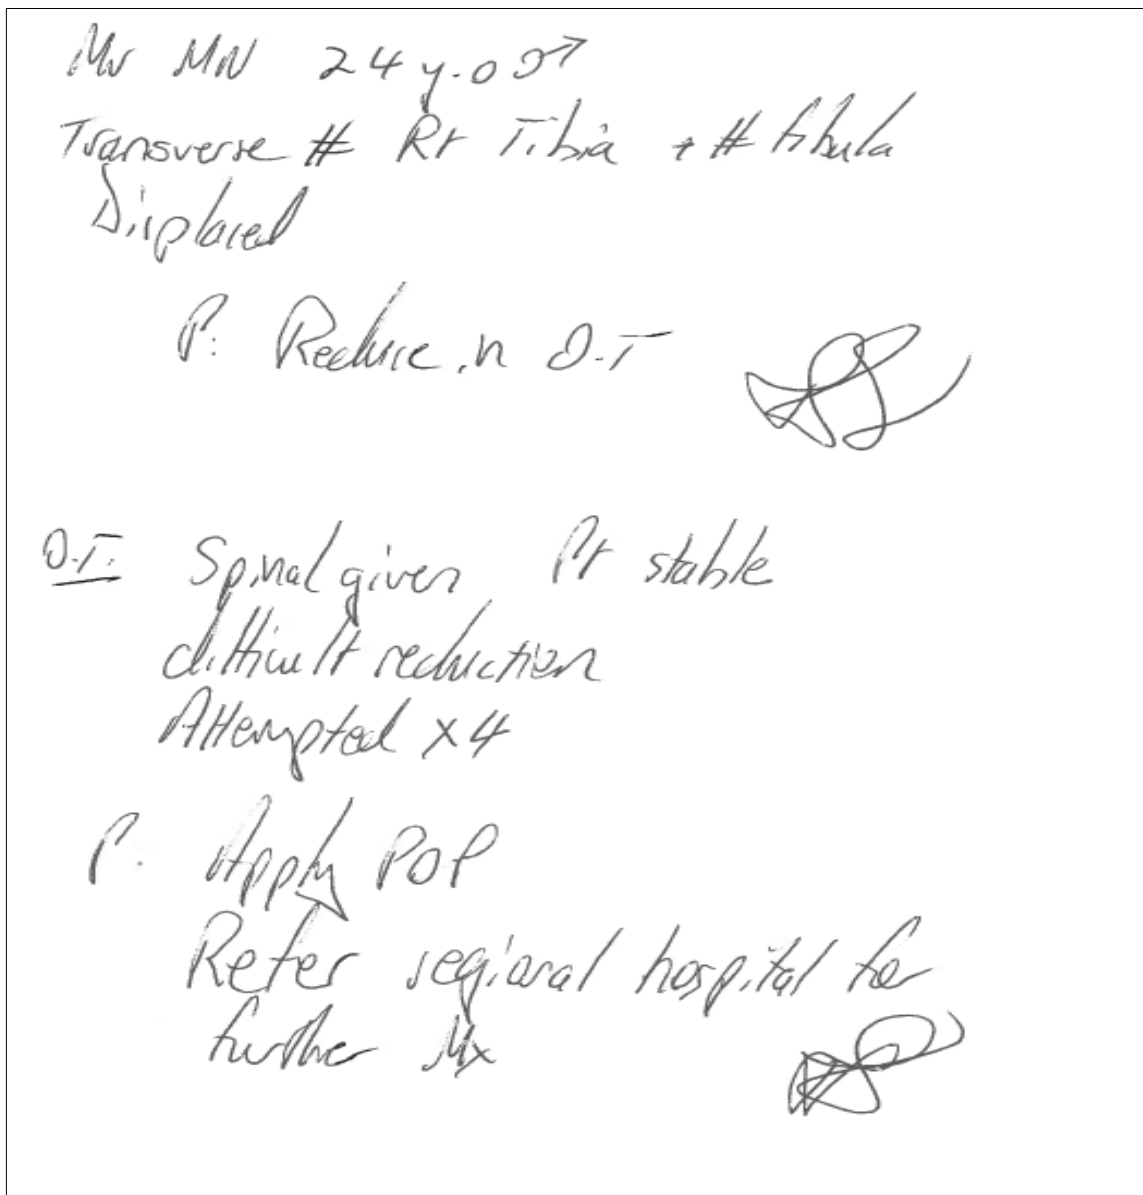 Mr MN 24 y.o ♂
Transverse # Rt Tibia + # fibula
Displaced
P: Reduce in O.T
O.T: Spinal given Pt stable
difficult reduction
Attempted x4
P: Apply POP
Refer regional hospital for
further Mx